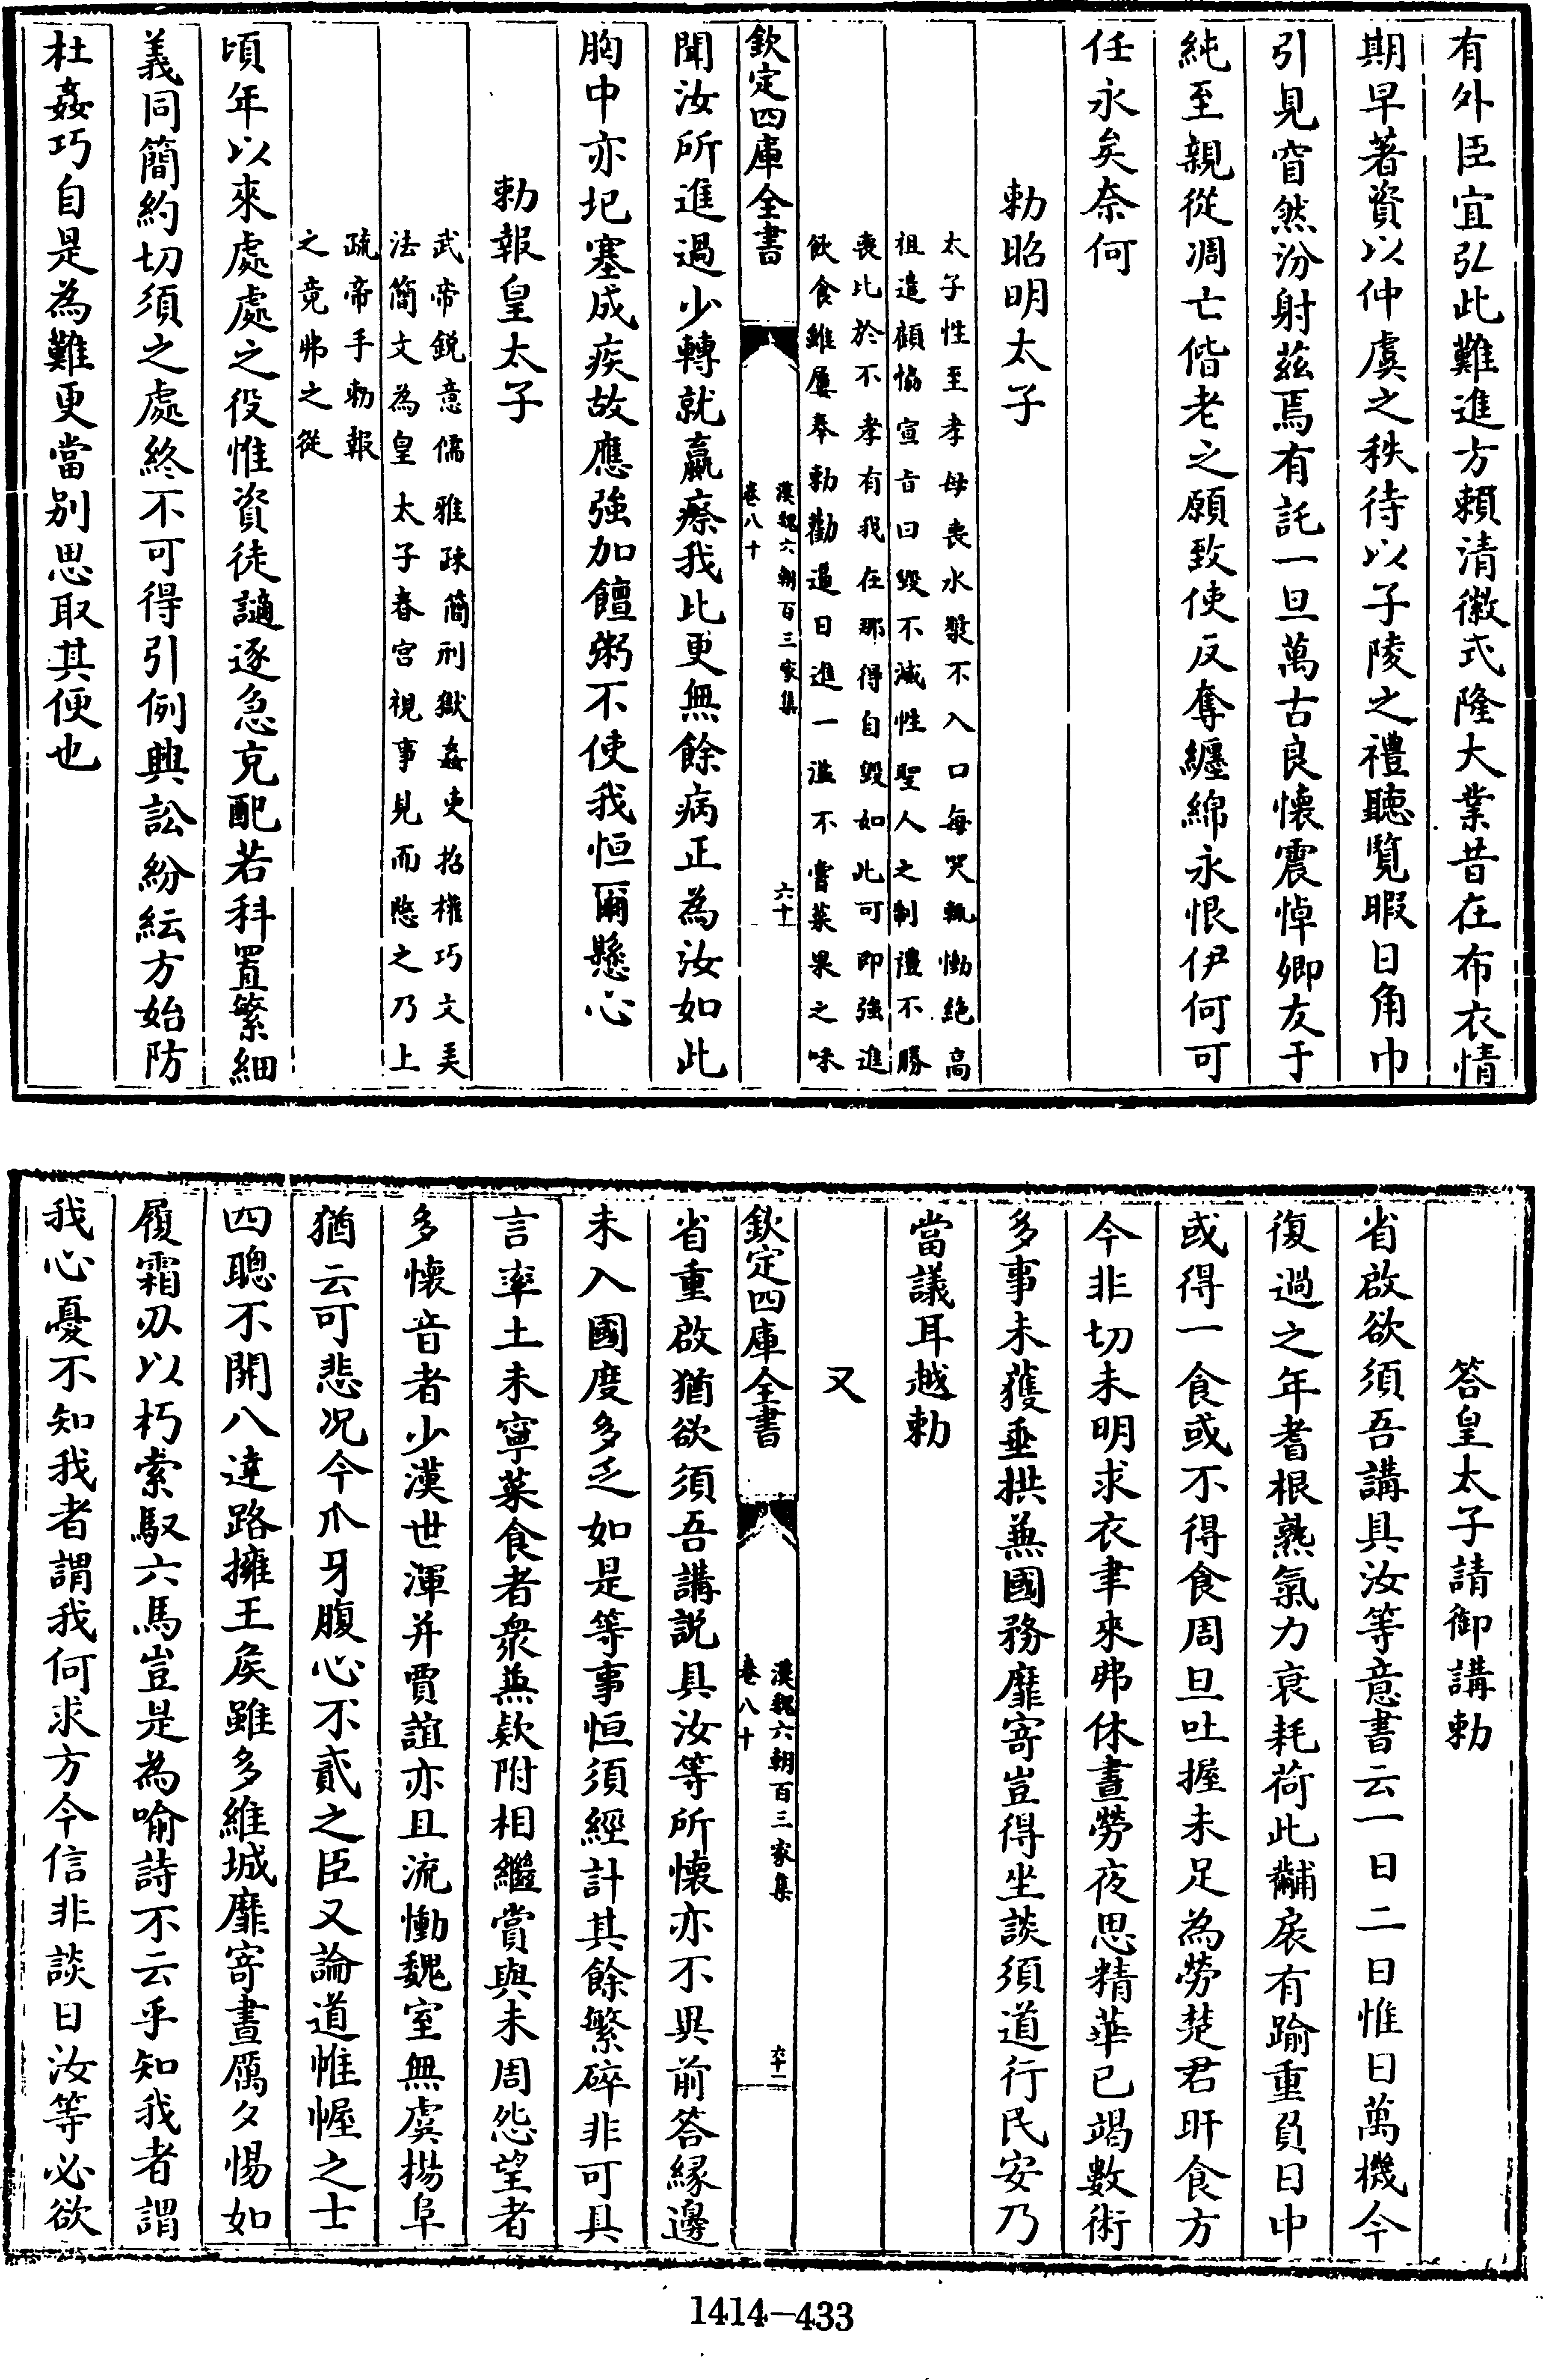 有外臣宜弘此難進方賴清徽式隆大業昔在布衣情
期早著資以仲虞之秩待以子陵之禮聽覽暇日角巾
引見窅然汾射茲焉有託一旦萬古良懷震悼卿友于
純至親從凋亡偕老之願致使反奪纏綿永恨伊何可
任永矣奈何
勅昭明太子
太子性至孝母喪水漿不入口每哭輒慟絶高
祖遣顧協宣旨曰毀不滅性聖人之制禮不勝
喪比於不孝有我在那得自毀如此可即強進
飲食雖屢奉勅勸逼日進一溢不嘗菜果之味
欽定四庫全書
漢魏六朝百三家集
卷八十
六十一
聞汝所進過少轉就羸瘵我比更無餘病正為汝如此
胸中亦圮塞成疾故應強加饘粥不使我恒爾懸心
勅報皇太子
武帝鋭意儒雅疎簡刑獄姦吏招權巧文弄
法簡文為皇太子春宫視事見而愍之乃上
疏帝手勅報
之竟弗之從
頃年以來處處之役惟資徒讁逐急充配若科置繁細
義同簡約切須之處終不可得引例興訟紛紜方始防
杜姦巧自是為難更當别思取其便也
答皇太子請御講勅
省啟欲須吾講具汝等意書云一日二日惟日萬機今
復過之年耆根熟氣力衰耗荷此黼扆有踰重負日中
或得一食或不得食周旦吐握未足為勞楚君旰食方
今非切未明求衣聿來弗休晝勞夜思精華已竭數術
多事未獲垂拱兼國務靡寄豈得坐談須道行民安乃
當議耳越勅
又
欽定四庫全書
漢魏六朝百三家集
卷八十
六十二
省重啟猶欲須吾講説具汝等所懷亦不異前答緣邊
未入國度多乏如是等事恒須經計其餘繁碎非可具
言率土未寧菜食者衆兼欵附相繼賞與未周怨望者
多懷音者少漢世渾并賈誼亦且流慟魏室無虞揚阜
猶云可悲况今爪牙腹心不貳之臣又論道惟幄之士
四聰不開八達路擁王侯雖多維城靡寄晝厲夕惕如
履霜刃以朽索馭六馬豈是為喻詩不云乎知我者謂
我心憂不知我者謂我何求方今信非談日汝等必欲
1414-433